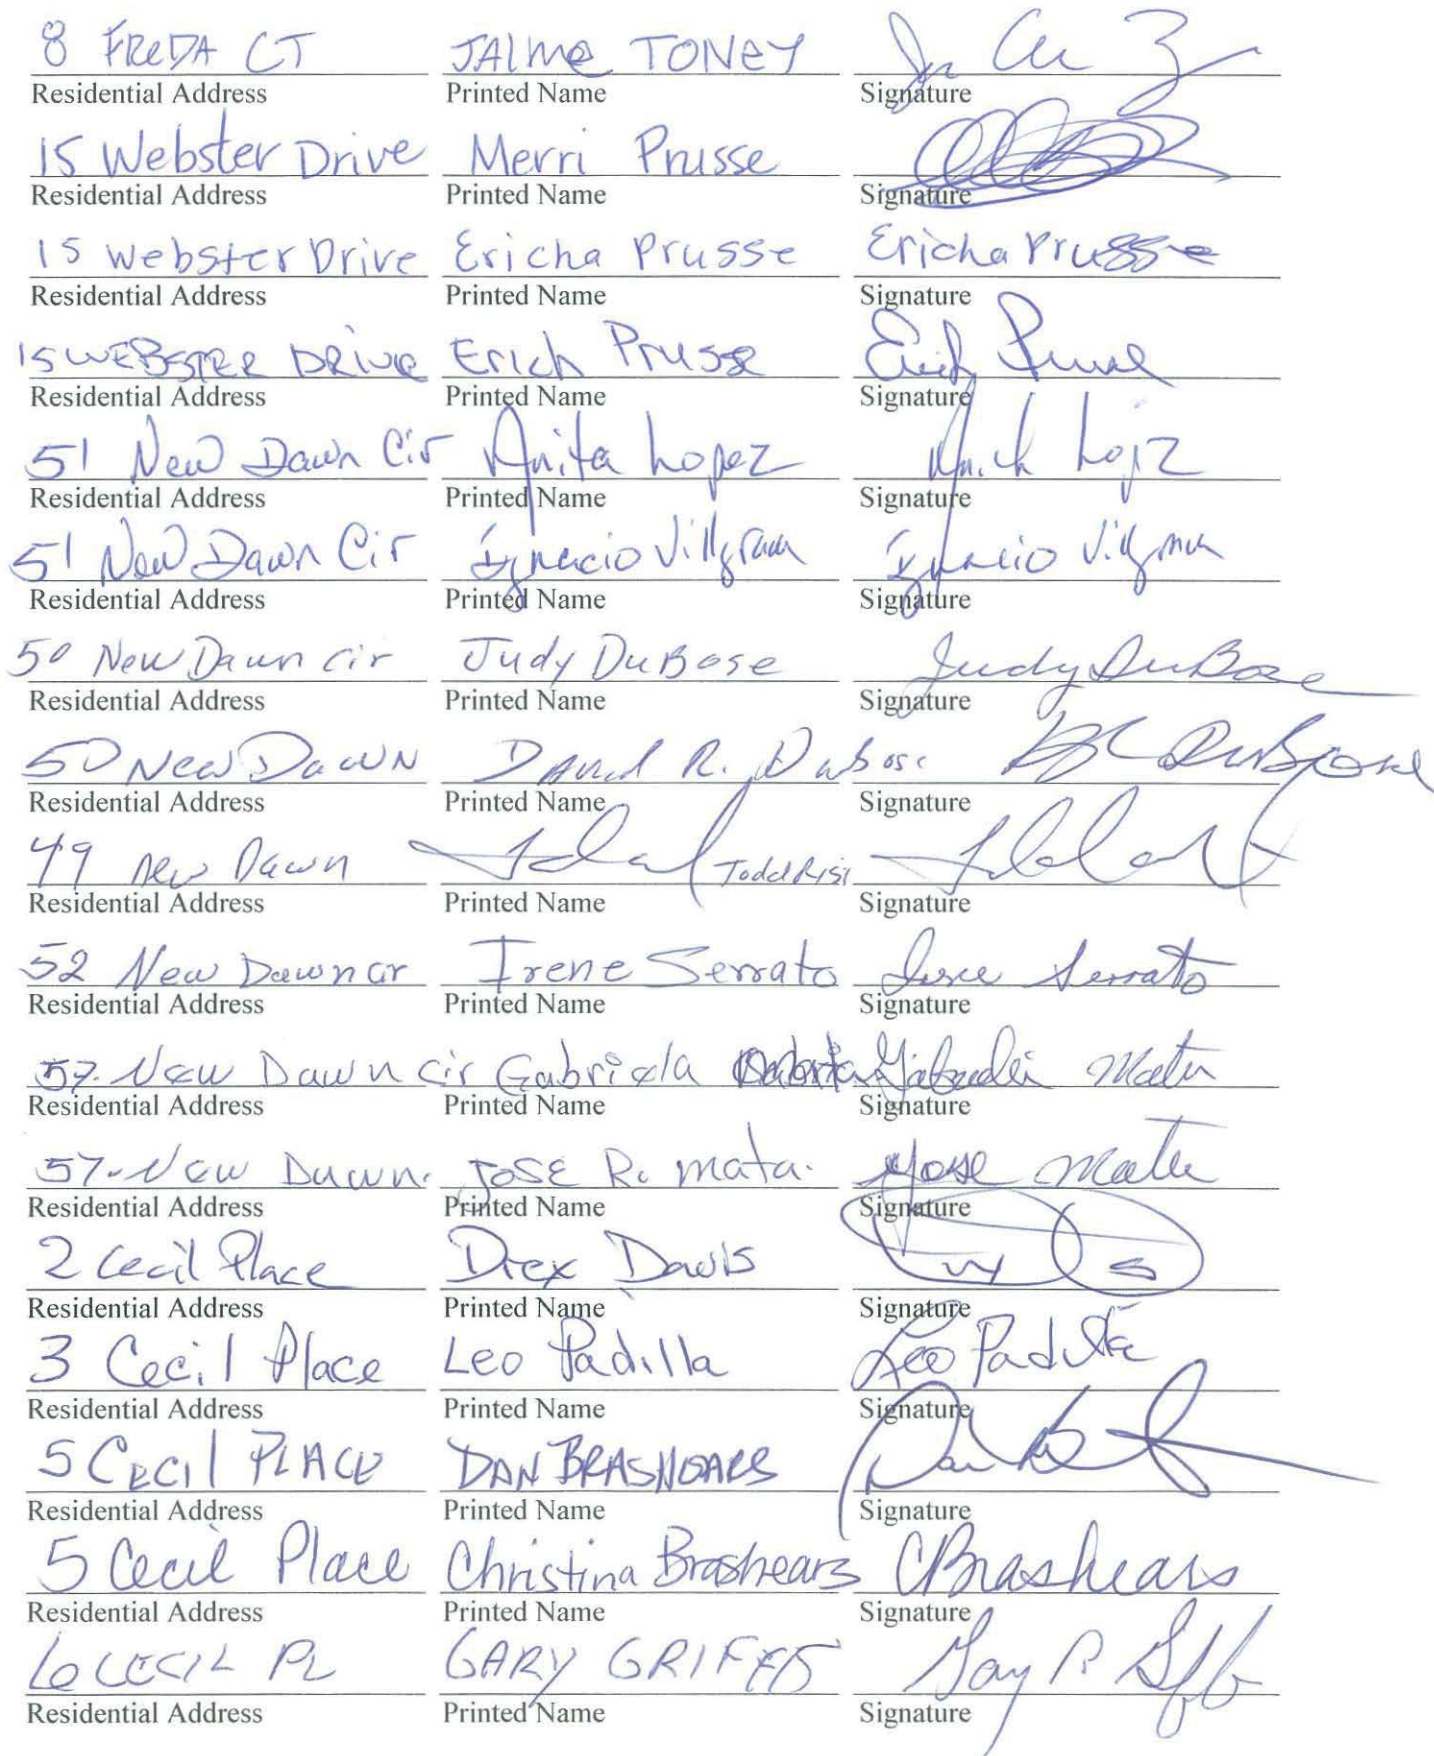 8 FREDA CT JAIME TONEY
Residential Address Printed Name Signature
15 Webster Drive Merri Prusse
Residential Address Printed Name Signature
15 Webster Drive Ericha Prusse Ericha Prusse
Residential Address Printed Name Signature
15 WEBSTER DRIVE Erich Prusse Erich Prusse
Residential Address Printed Name Signature
51 New Dawn Cir Anita Lopez
Residential Address Printed Name Signature
51 New Dawn Cir Ignacio Ignacio
Residential Address Printed Name Signature
50 New Dawn cir Judy DuBose Judy DuBose
Residential Address Printed Name Signature
50 New Dawn R. DuBose DuBose
Residential Address Printed Name Signature
49 New Dawn Todd Risi
Residential Address Printed Name Signature
52 New Dawn cir Irene Serrato Irene Serrato
Residential Address Printed Name Signature
57. New Dawn cir Gabriela Mata
Residential Address Printed Name Signature
57. New Dawn. JOSE R. mata. Jose Mata
Residential Address Printed Name Signature
2 Cecil Place Drex Davis
Residential Address Printed Name Signature
3 Cecil Place Leo Padilla Leo Padilla
Residential Address Printed Name Signature
5 CECIL PLACE DAN BRASHEARS
Residential Address Printed Name Signature
5 Cecil Place Christina Brashears CBrashears
Residential Address Printed Name Signature
6 CECIL PL GARY
Residential Address Printed Name Signature